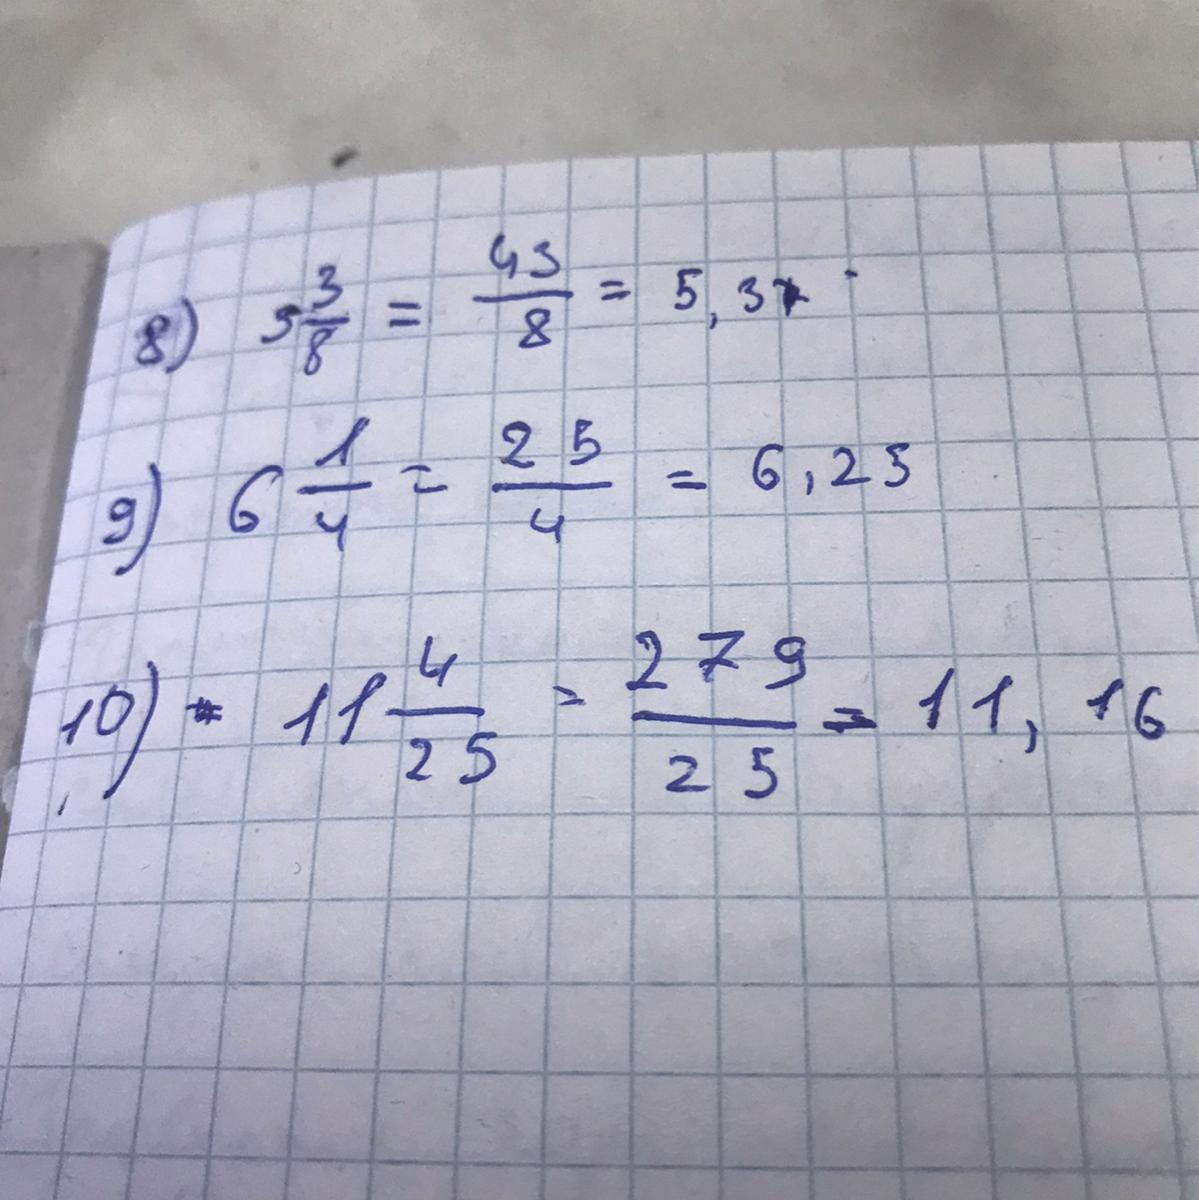 8) 5 3/8 = 43/8 = 5,3
9) 6 1/4 = 25/4 = 6,25
10) 11 4/25 = 279/25 = 11,16